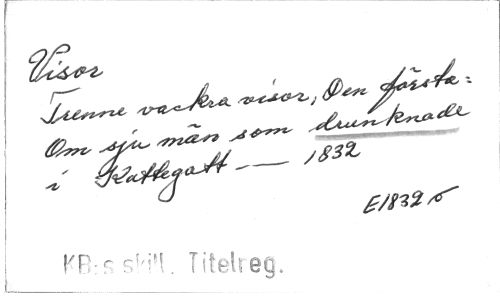 Visor
Trenne vackra visor, Den första:
Om sju män som drunknade
i Kattegatt — 1832
E1832
KB:s skill. Titelreg.